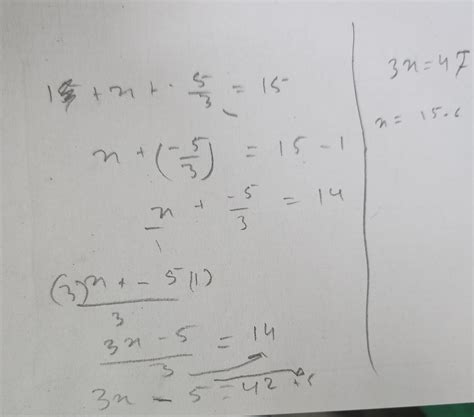 1 + x + - 5/3 = 15
x + (-5/3) = 15 - 1
x/1 + -5/3 = 14
(3)x + - 5(1)/3
3x - 5/3 = 14
3x - 5 = 42
3x = 47
x = 15.6